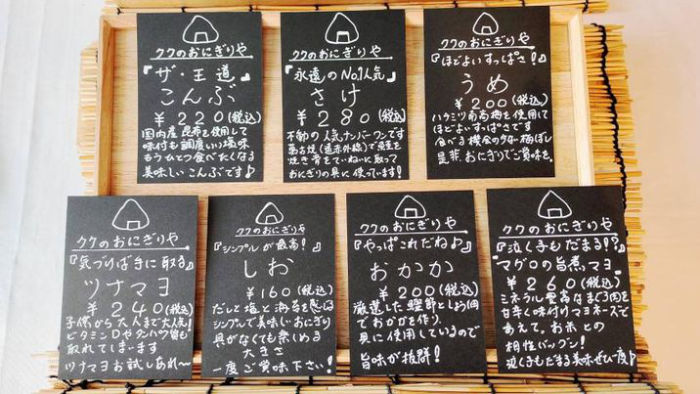 ククのおにぎりや
『ザ・王道』
こんぶ
￥220(税込)
国内産昆布を使用して
味付も調度いい塩味
もうひとつ食べたくなる
美味しいこんぶです♪
ククのおにぎりや
『永遠のNo.1人気』
さけ
￥280(税込)
不動の人気ナンバーワンです
(遠赤外線)で
焼き骨をていねいに取って
おにぎりの具に使っています!
ククのおにぎりや
『ほどよいすっぱさ!』
うめ
￥200(税込)
ハチミツ南高梅を使用して
ほどよいすっぱさです
食べる機会の少ない梅ぼし
是非おにぎりでご賞味を。
ククのおにぎりや
『気づけば手に取る』
ツナマヨ
￥240(税込)
子供から大人まで大人気!
ビタミンDやタンパク質も
取れてしまいます
ツナマヨお試しあれ〜
ククのおにぎりや
『シンプルが最高!』
しお
￥160(税込)
だしで塩と海苔を感じる
シンプルで美味しいおにぎり
具がなくても楽しめる
大きさ
一度ご賞味下さい!
ククのおにぎりや
『やっぱこれだね♪』
おかか
￥200(税込)
厳選した鰹節としょう油
でおかかを作り、
具に使用しているので
旨味が抜群!
ククのおにぎりや
『泣く子もだまる!?』
マグロの旨煮マヨ
￥260(税込)
ミネラル豊富なまぐろ肉を
甘辛く味付けマヨネーズで
あえて。お米との
相性バッグン!
泣く子もだまる美味ぜひ一度♪